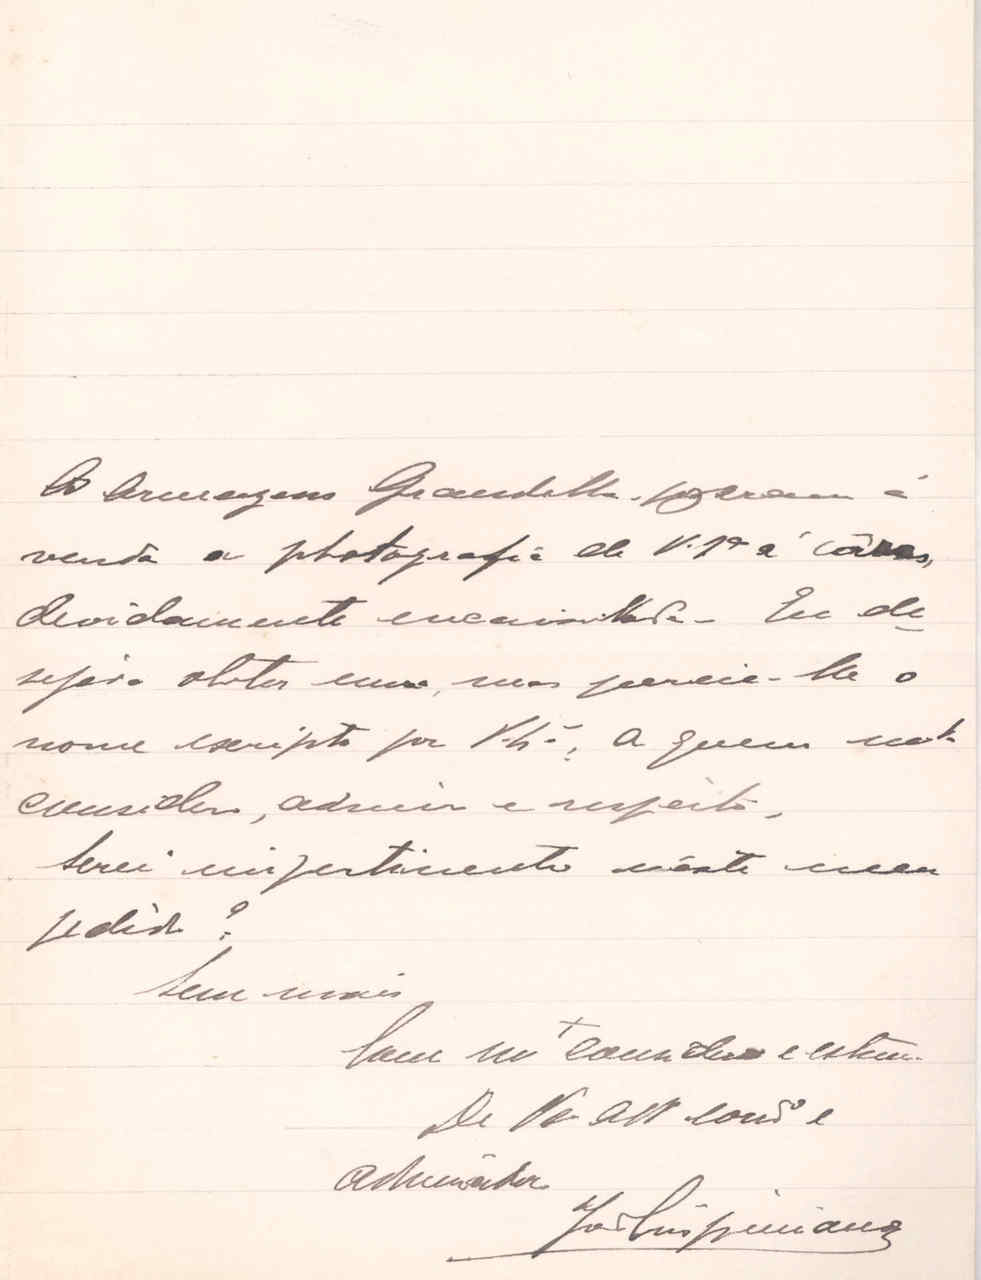 Os Armazens Grandella pozeram á
venda a photografia de V. Exª a côres,
devidamente encaixilhada. Eu de-
sejava obter uma, mas parecia-lhe o
nome escripto por V. Exª, a quem mto
considero, admiro e respeito.
Serei impertinente néste meu
pedido?
Sem mais
Com mta consideração e estima
De V. Att. cons.or e
admirador
José Crispiniano